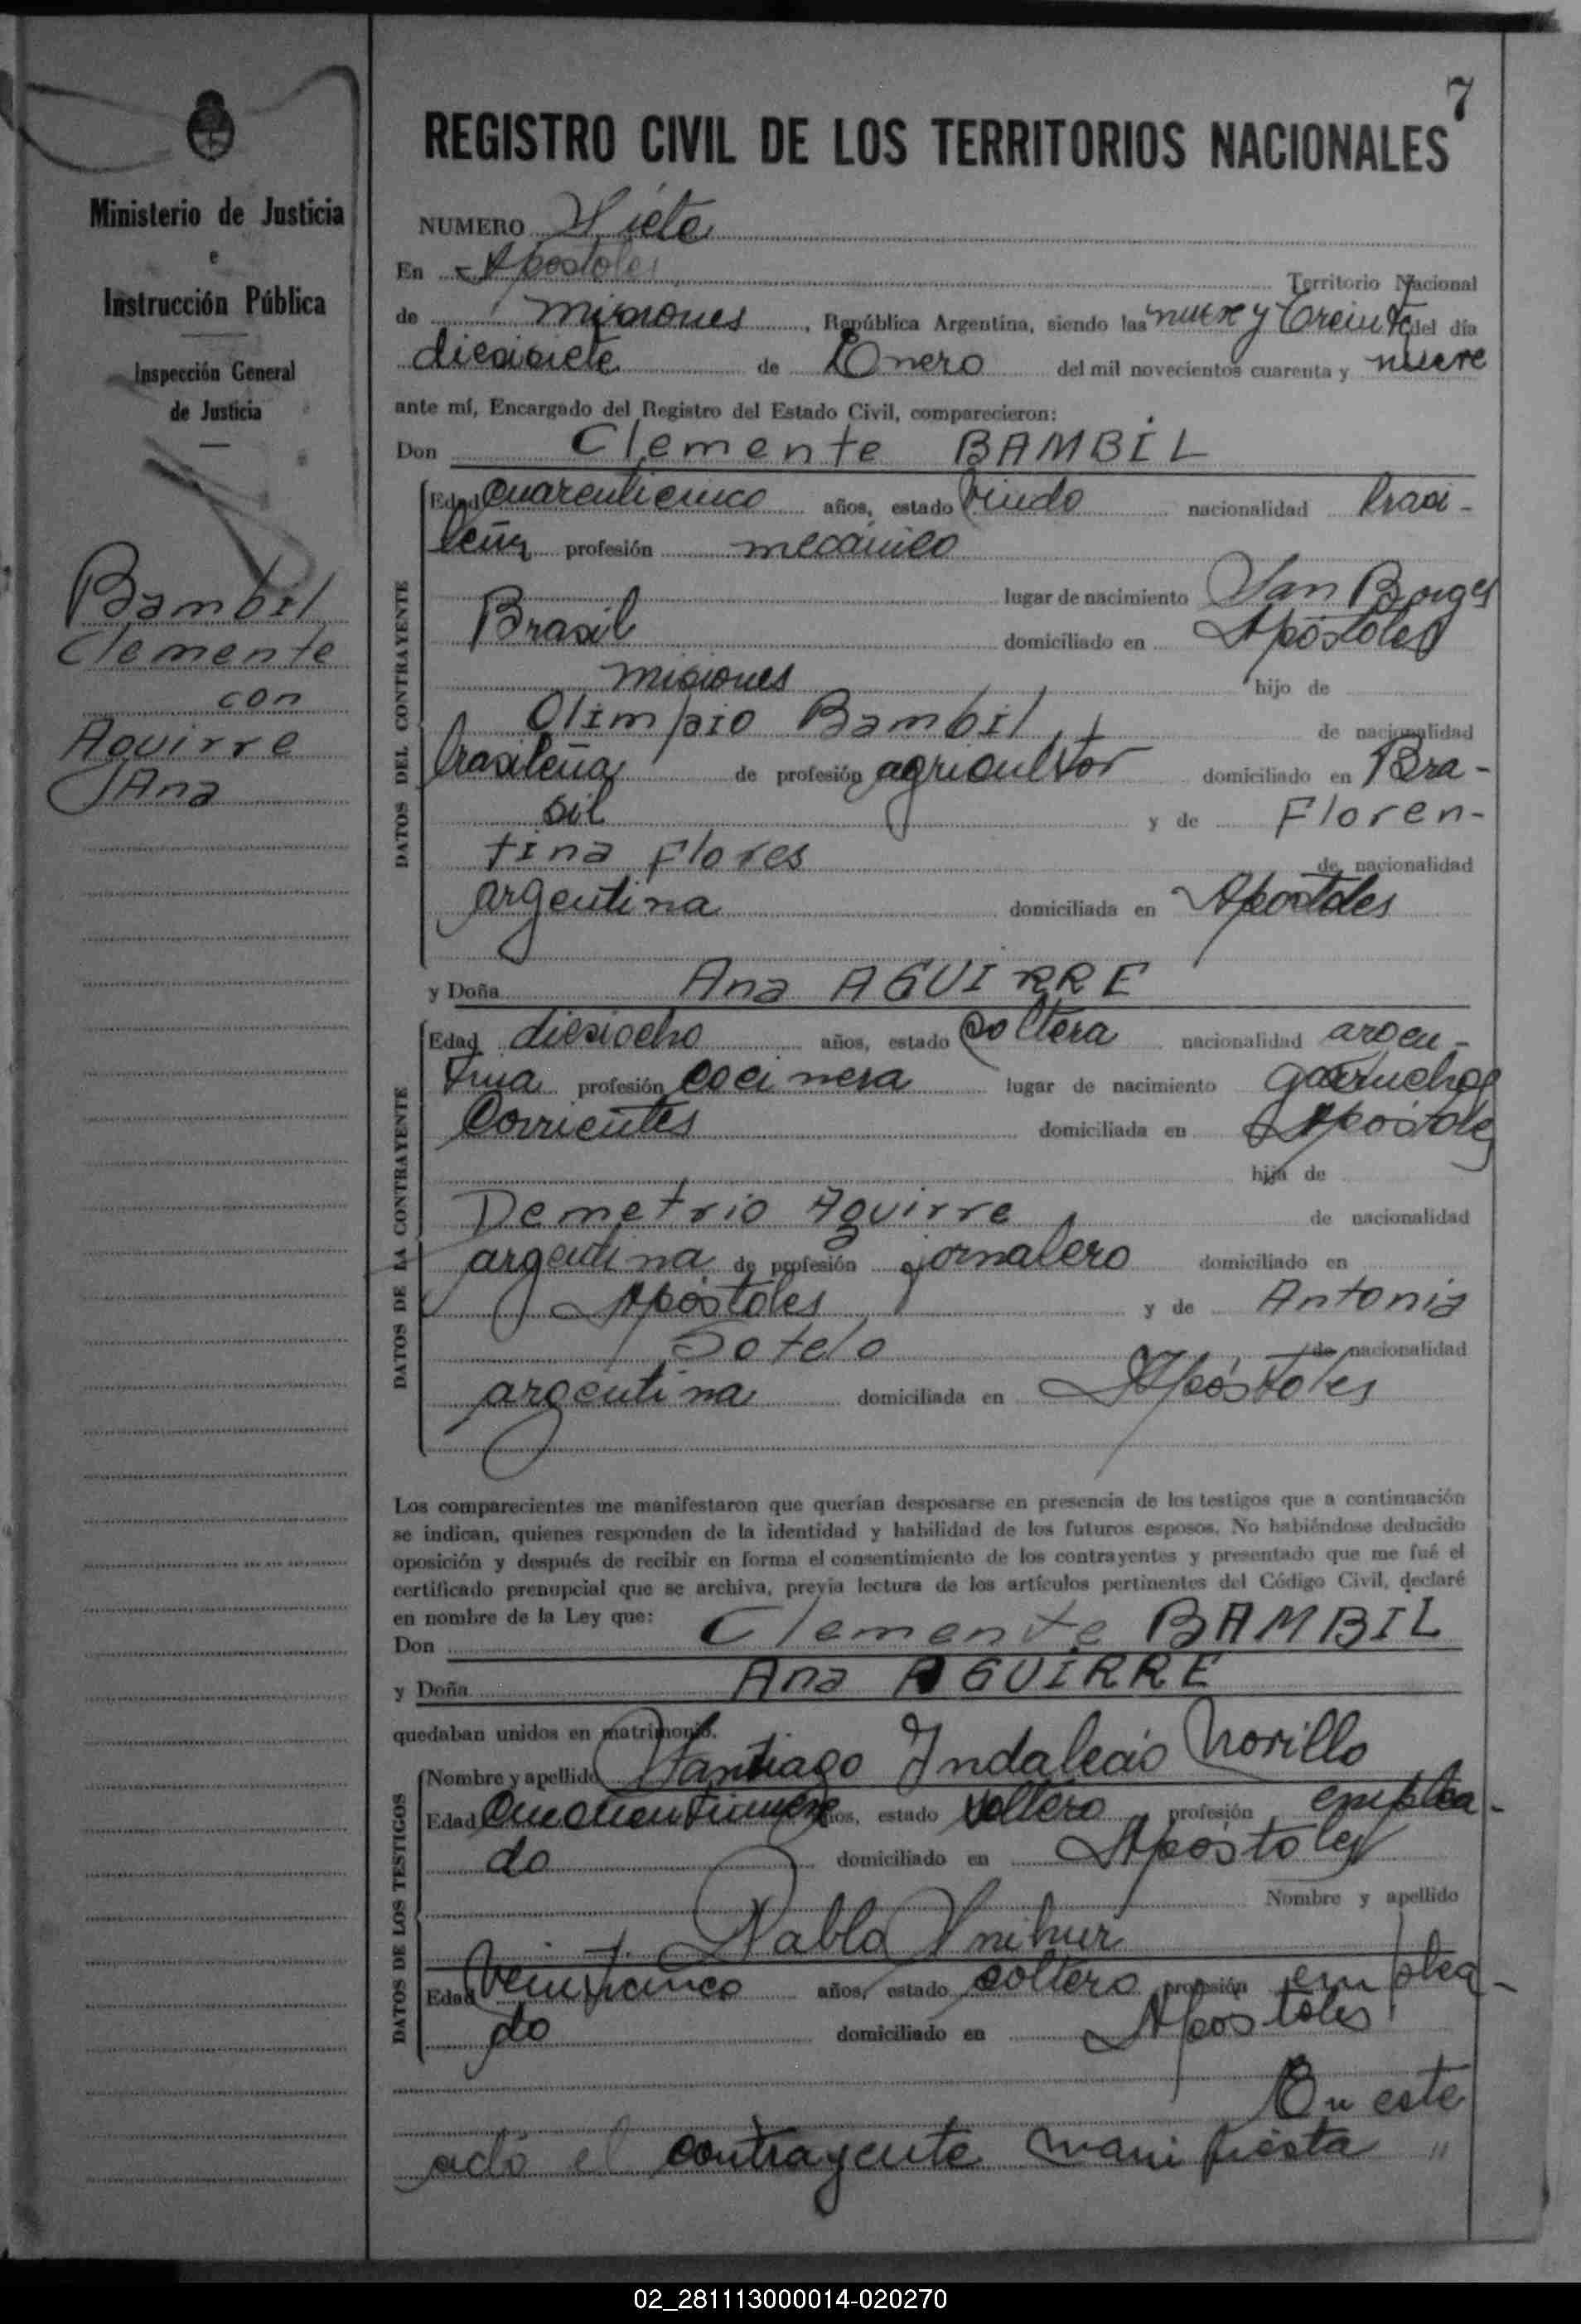 7
REGISTRO CIVIL DE LOS TERRITORIOS NACIONALES
Ministerio de Justicia
e
Instrucción Pública
Inspección General
de Justicia
Bambil
Clemente
con
Aguirre
Ana
NUMERO Siete
En Apostoles Territorio Nacional
de Misiones, República Argentina, siendo las nueve y treinta del día
diesisiete de Enero del mil novecientos cuarenta y nueve
ante mí, Encargado del Registro del Estado Civil, comparecieron:
Don Clemente BAMBIL
DATOS DEL CONTRAYENTE
Edad cuarenticinco años, estado viudo nacionalidad brasi-
leña profesión mecánico
lugar de nacimiento San Borges
Brasil domiciliado en Apóstoles
Misiones hijo de
Olimpio Bambil, de nacionalidad
brasileña de profesión agricultor domiciliado en Bra-
sil y de Floren-
tina Flores de nacionalidad
argentina domiciliada en Apostoles
y Doña Ana AGUIRRE
DATOS DE LA CONTRAYENTE
Edad diesiocho años, estado soltera nacionalidad argen-
tina profesión cocinera lugar de nacimiento Garruchos
Corrientes domiciliada en Apóstoles
hija de
Demetrio Aguirre de nacionalidad
argentina de profesión jornalero domiciliado en
Apóstoles y de Antonia
Sotelo de nacionalidad
argentina domiciliada en Apóstoles
Los comparecientes me manifestaron que querían desposarse en presencia de los testigos que a continuación
se indican, quienes responden de la identidad y habilidad de los futuros esposos. No habiéndose deducido
oposición y después de recibir en forma el consentimiento de los contrayentes y presentado que me fué el
certificado prenupcial que se archiva, previa lectura de los artículos pertinentes del Código Civil, declaré
en nombre de la Ley que:
Don Clemente BAMBIL
y Doña Ana AGUIRRE
quedaban unidos en matrimonio.
DATOS DE LOS TESTIGOS
Nombre y apellido Santiago Indalecio Morillo
Edad años, estado soltero profesión emplea-
do domiciliado en Apóstoles
Nombre y apellido
Pablo
Edad Veinticinco años, estado soltero profesión emplea-
do domiciliado en Apóstoles
En este
acto el contrayente manifiesta "
02_281113000014-020270